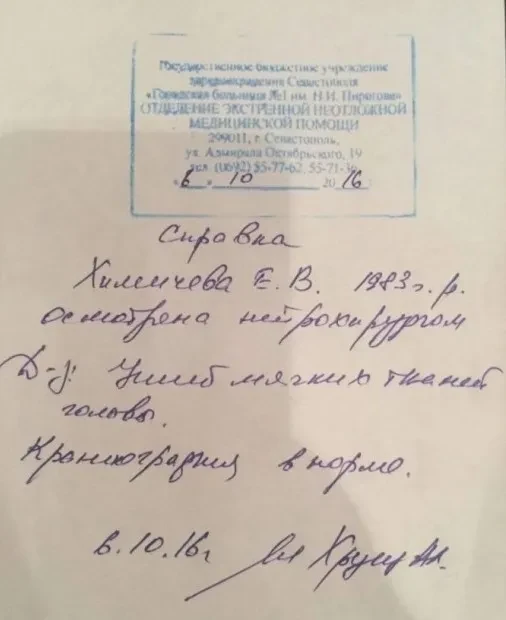 Государственное бюджетное учреждение
здравоохранения Севастополя
«Городская больница №1 им. Н.И. Пирогова»
ОТДЕЛЕНИЕ ЭКСТРЕННОЙ НЕОТЛОЖНОЙ
МЕДИЦИНСКОЙ ПОМОЩИ
299011, г. Севастополь,
ул. Адмирала Октябрьского, 19
тел. (0692) 55-77-62, 55-71-36
«6» 10 2016
Справка
Химичева Е. В. 1983 г. р.
осмотрена нейрохирургом
D-з: Ушиб мягких тканей
головы.
Краниография в норме.
6.10.16 г